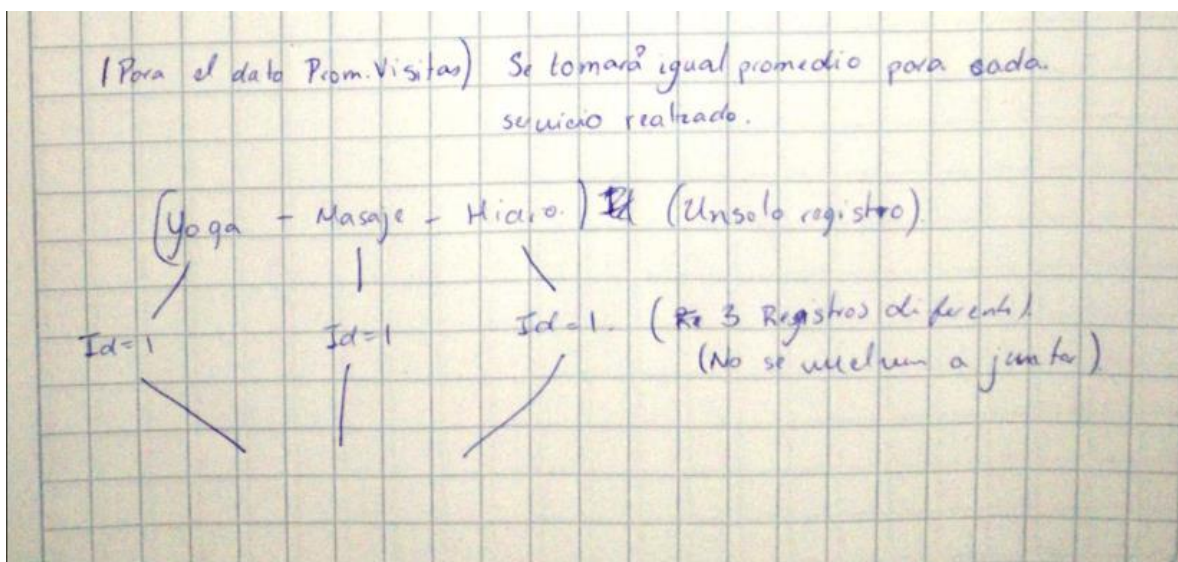 (Para el dato Prom. Visitas) Se tomará igual promedio para cada
servicio realizado.
(Yoga - Masaje - Hidro.) (Un solo registro).
Id=1 Id=1 Id=1. (3 Registros diferentes).
(No se vuelven a juntar)